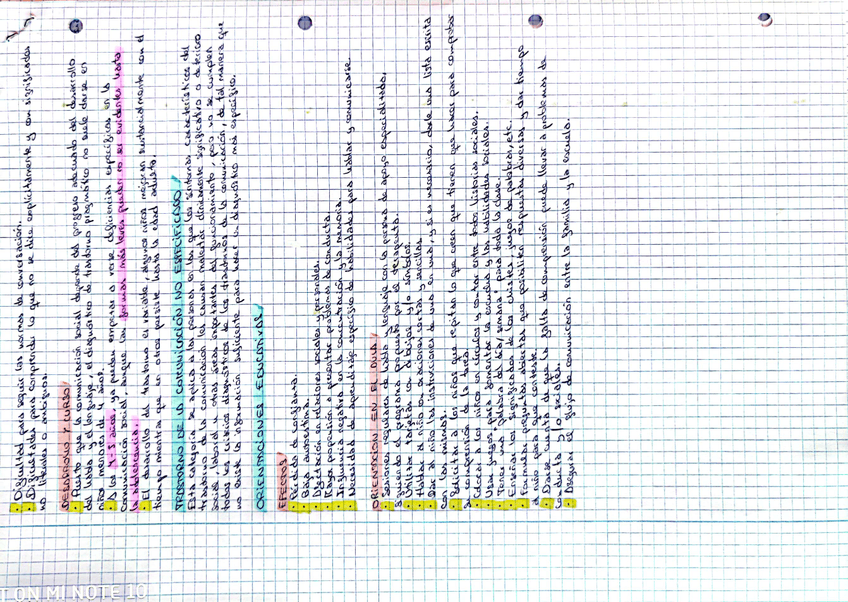 · Dificultad para seguir las normas de conversación.
· Dificultades para comprender lo que no se dice explícitamente y con significados
no literales o ambiguos.
DESARROLLO Y CURSO
· Puesto que la comunicación social depende del progreso adecuado del desarrollo
del habla y el lenguaje, el diagnóstico de trastorno pragmático no suele darse en
niños menores de 4 años.
· A los 4-5 años, ya pueden empezar a verse deficiencias específicas en la
comunicación social, aunque las formas más leves pueden no ser evidentes hasta
la adolescencia.
· El desarrollo del trastorno es variable, algunos niños mejoran sustancialmente con el
tiempo mientras que en otros persiste hasta la edad adulta.
TRASTORNO DE LA COMUNICACIÓN NO ESPECIFICADO
Esta categoría se aplica a las personas en las que los síntomas característicos del
trastorno de la comunicación les causan malestar clínicamente significativo o deterioro
social, laboral u otras áreas importantes del funcionamiento, pero no se cumplen
todos los criterios diagnósticos de los trastornos de la comunicación, de tal manera que
no existe la información suficiente para hacer un diagnóstico más específico.
ORIENTACIONES EDUCATIVAS
EFECTOS
· Pérdida de confianza.
· Baja autoestima.
· Afectación en relaciones sociales y personales.
· Mayor propensión a presentar problemas de conducta.
· Influencia negativa en la concentración y la memoria.
· Necesidad de aprendizaje específico de habilidades para hablar y comunicarse.
ORIENTACIÓN EN EL AULA
· Sesiones regulares de habla y lenguaje con la persona de apoyo especializado,
siguiendo el programa propuesto por el terapeuta.
· Utilizar tarjetas con dibujos y/o símbolos.
· Hablar al niño con oraciones cortas y sencillas.
· Dar al niño las instrucciones de una en una, y si es necesario, darle una lista escrita
con las mismas.
· Solicitar a los niños que repitan lo que creen que tienen que hacer para comprobar
su comprensión de la tarea.
· Colocar a los niños en círculos y contar entre todos historias sociales.
· Usar juegos para fomentar la escucha y las habilidades sociales.
· Tener una "palabra del día/semana" para toda la clase.
· Enseñar los significados de los chistes, juegos de palabras, etc.
· Formular preguntas abiertas que posibiliten respuestas diversas y dar tiempo
al niño para que conteste.
· Darse cuenta de que la falta de comprensión puede llevar a problemas de
conducta y/o sociales.
· Asegurar el flujo de comunicación entre la familia y la escuela.
T ON MI NOTE 10